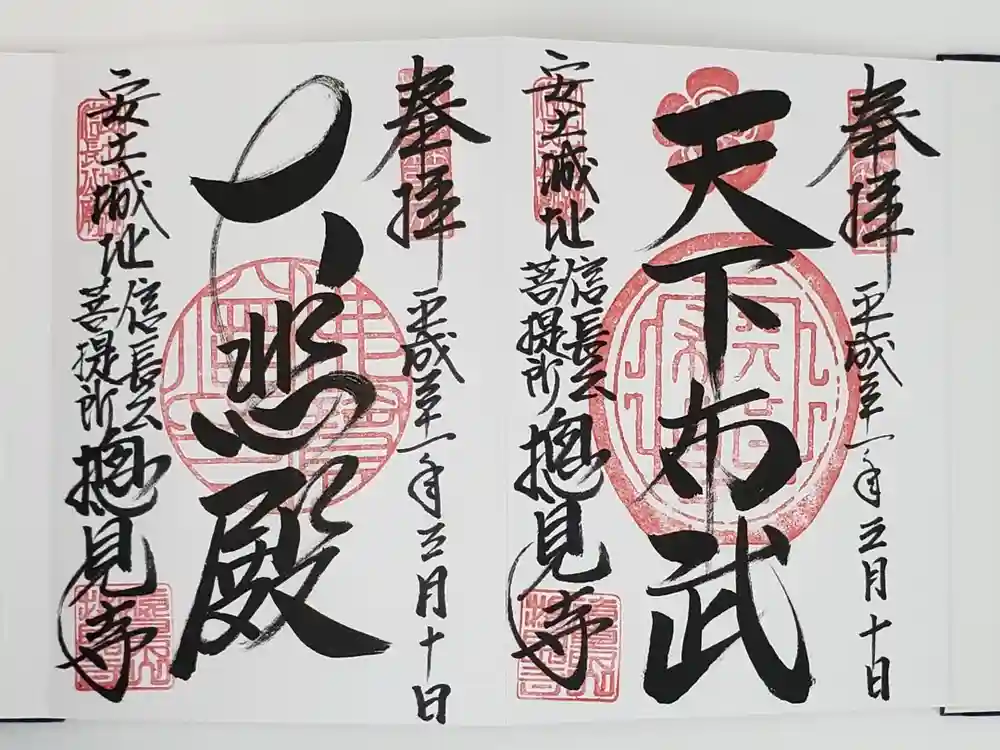 奉拝
平成卅一年三月十日
天下布武
安土城址
信長公
菩提所
摠見寺
奉拝
平成卅一年三月十日
大悲殿
安土城址
信長公
菩提所
摠見寺